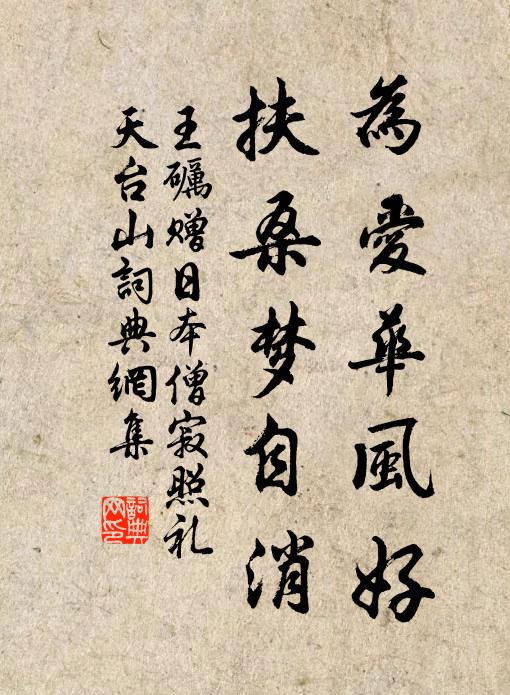 為愛華風好
扶桑梦自消
王礪赠日本僧寂照礼
天台山詞典網集
詞典
网印